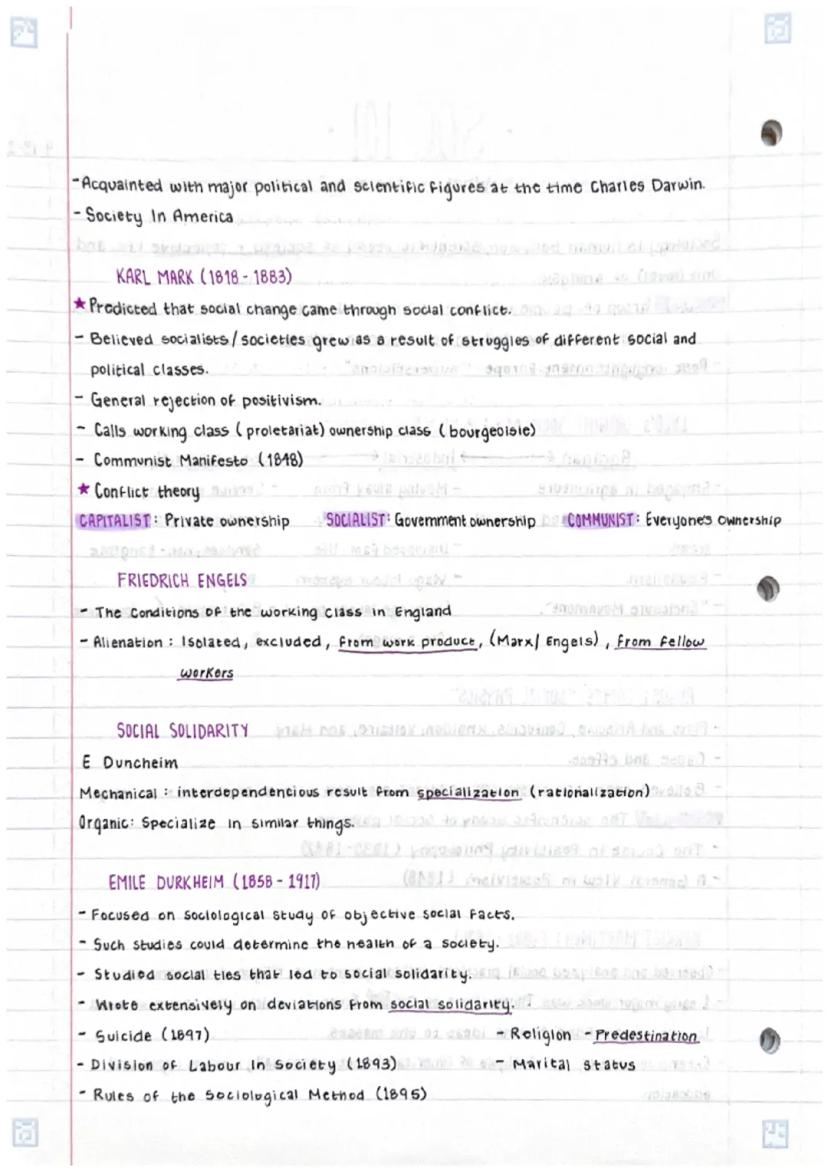 -Acquainted with major political and scientific figures at the time Charles Darwin.
- Society In America
KARL MARK (1818 - 1883)
★ Predicted that social change came through social conflict.
- Believed socialists/societies grew as a result of struggles of different social and
political classes.
- General rejection of positivism.
- Calls working class (proletariat) ownership class (bourgeoisie)
- Communist Manifesto (1848)
★ Conflict theory
CAPITALIST: Private ownership SOCIALIST: Government ownership COMMUNIST: Everyone's ownership
FRIEDRICH ENGELS
- The Conditions of the working class in England
- Alienation : Isolated, excluded, from work product, (Marx/ Engels), from fellow
workers
SOCIAL SOLIDARITY
E Duncheim
Mechanical : interdependencious result from specialization (rationalization)
Organic: Specialize in similar things.
EMILE DURKHEIM (1858 - 1917)
- Focused on sociological study of objective social facts.
- Such studies could determine the health of a society.
- Studied social ties that led to social solidarity.
- Wrote extensively on deviations from social solidarity.
- Suicide (1897) - Religion - Predestination
- Division of Labour in Society (1893) - Marital status
- Rules of the Sociological Method (1895)